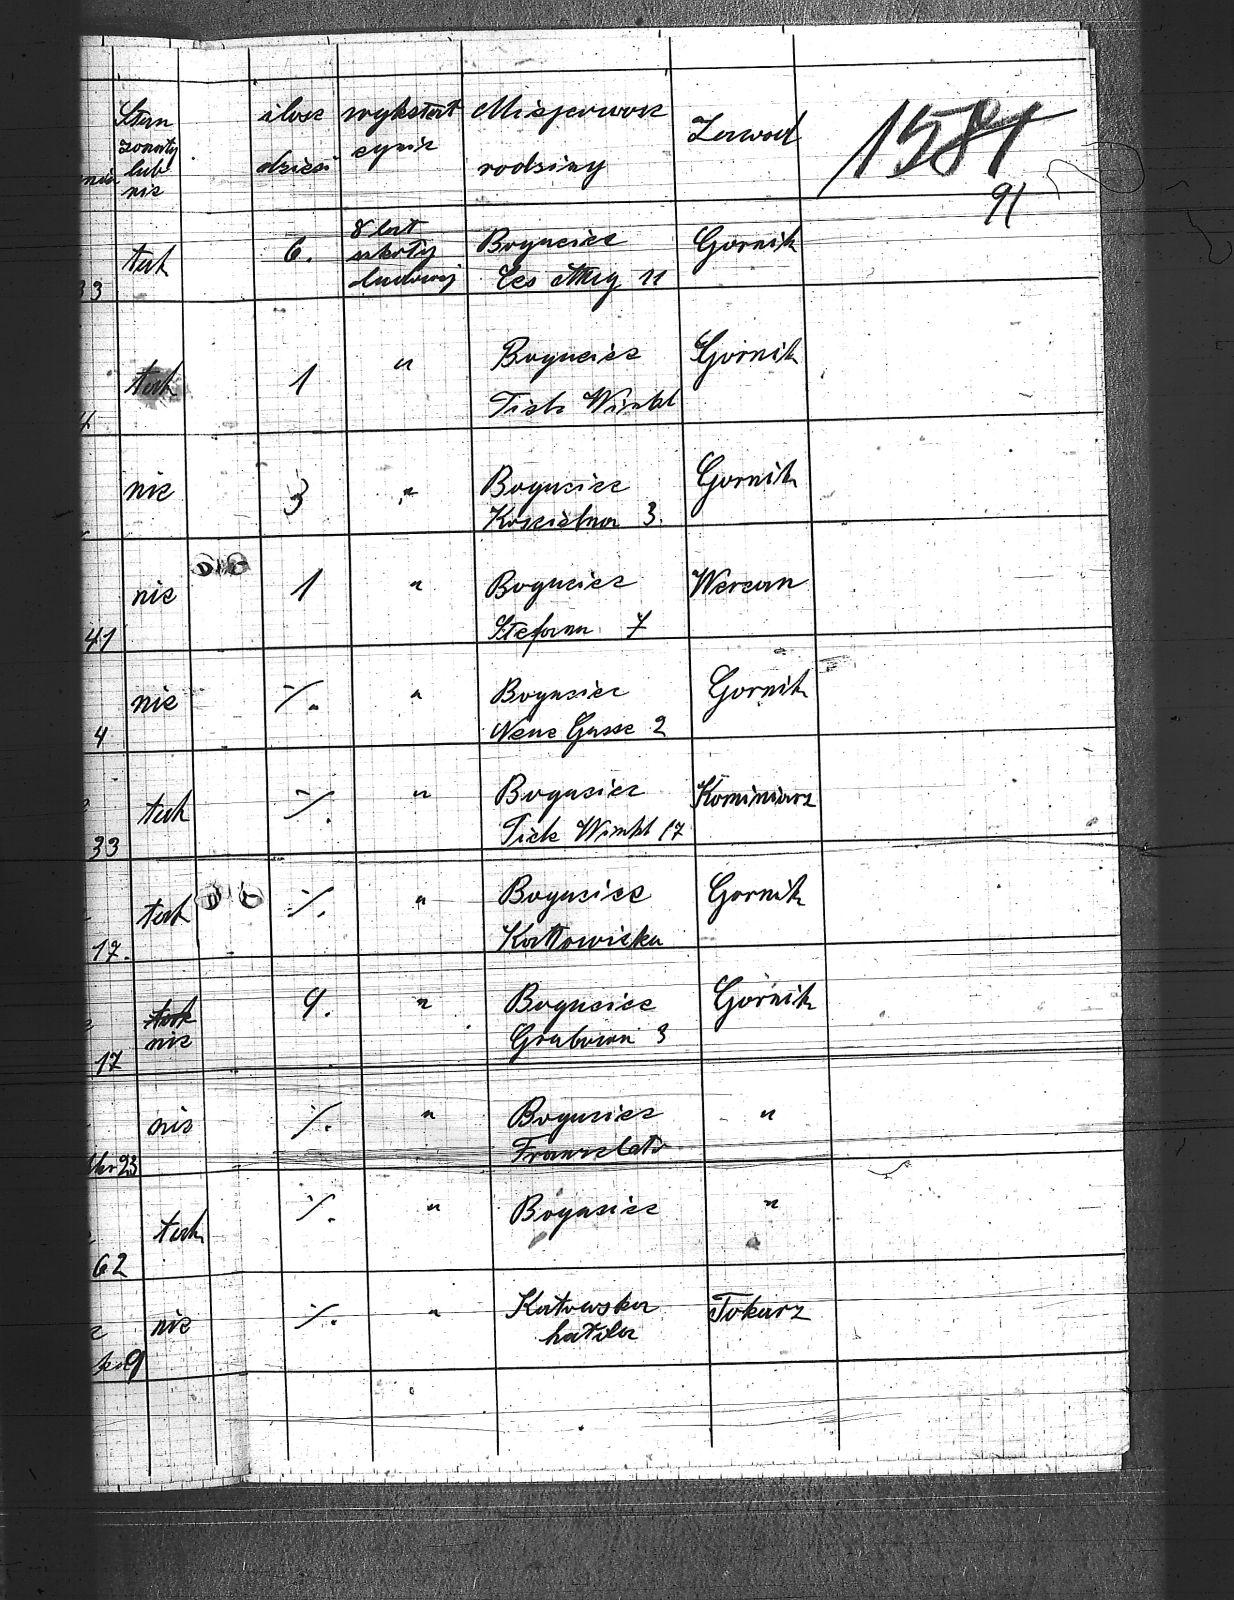 Stan żonaty lub nie | ilosc dzieci | wykształcenie | Miejscowosc rodziny | Zawod
1581
91
33 | tak | 6. | 8 lat szkoły ludowej | Bogucice 11 | Gornik
4 | tak | 1 | " | Bogucice | Gornik
nie | 3 | " | Bogucice Koscielna 3. | Gornik
41 | nie | 1 | " | Bogucice Stefana 7
4 | nie | ·/. | " | Bogucice Neue Gasse 2 | Gornik
33 | tak | ·/. | " | Bogucice 17 | Kominiarz
17. | tak | ·/. | " | Bogucice Kattowicka | Gornik
17 | tak nie | 9. | " | Bogucice 3 | Gornik
23 | nie | ·/. | " | Bogucice | "
62 | tak | ·/. | " | Bogucice | "
9 | nie | ·/. | " | Katowska hałda | Tokarz